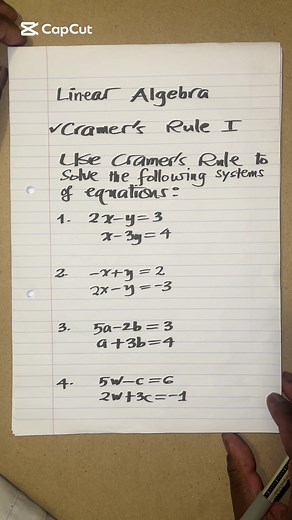 CapCut
Linear Algebra
✓Cramer's Rule I
Use Cramer's Rule to
Solve the following systems
of equations:
1. 2x-y=3
x-3y=4
2. -x+y=2
2x-y=-3
3. 5a-2b=3
a+3b=4
4. 5w-c=6
2w+3c=-1